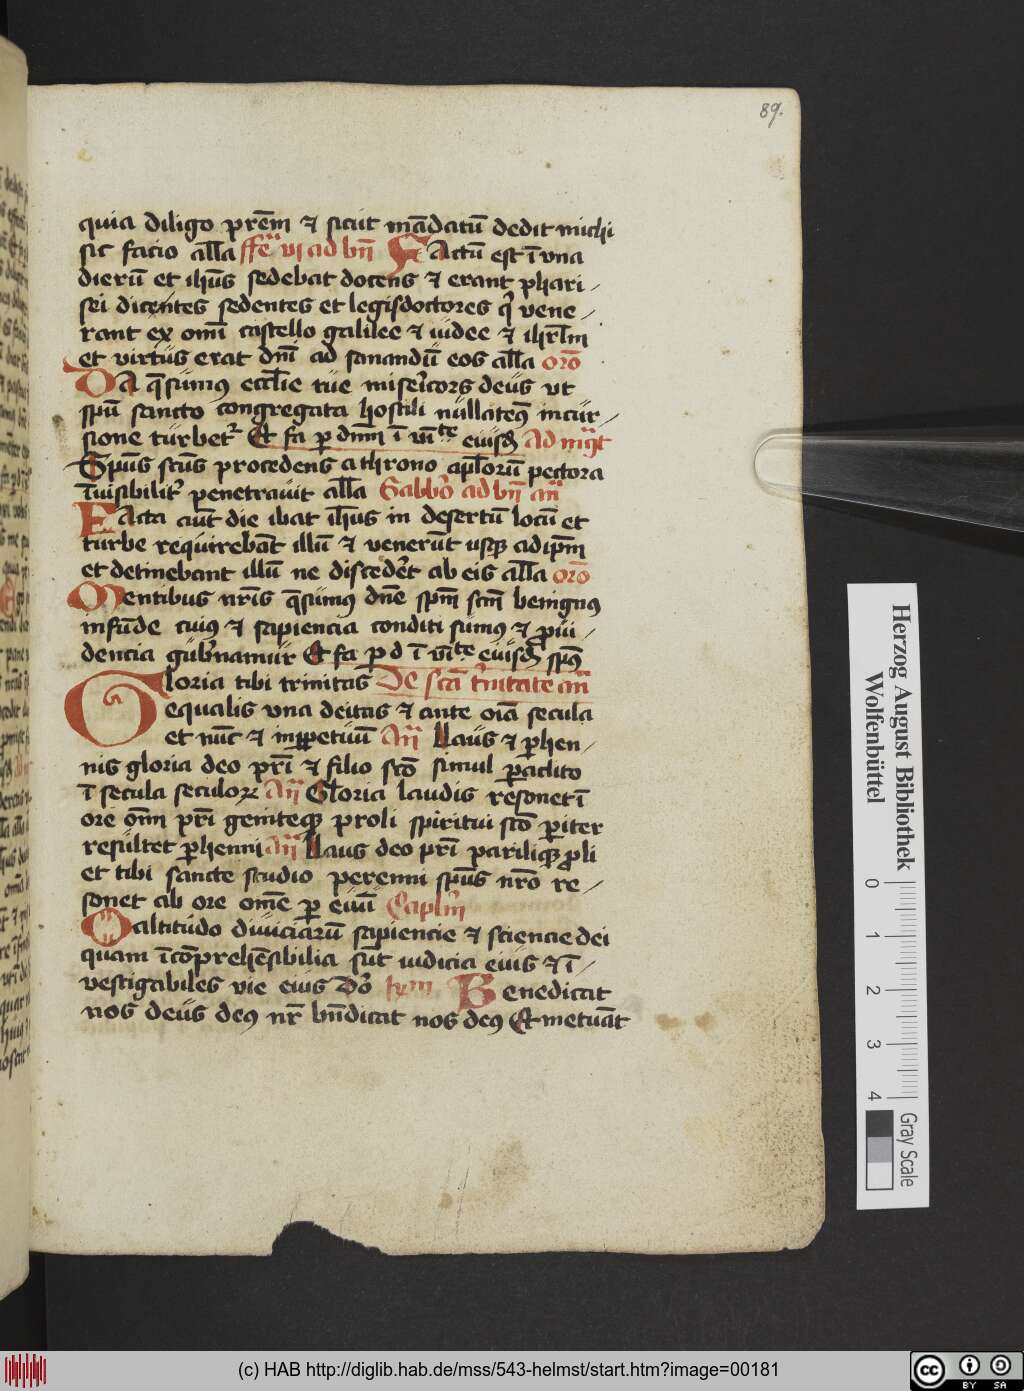 89.
quia diligo pr̄em ⁊ sicut mādatū dedit michi
sic facio all̄a ffē vi ad bn̄ FActū est ī vna
dierū et ih̄us sedebat docens ⁊ erant phari
sei dicentes sedentes et legisdoctores q̄ vene
rant ex om̄i castello galilee ⁊ iudee ⁊ ihrl̄m
et virtus erat dn̄i ad sanandū eos all̄a orō
DA q̄sumus eccl̄ie tue misēicors deus vt
sp̄u sancto congregata hostili nullateꝰ incur
sione turbet̄ Et fa p dn̄m ī vītē eiusd̄ Ad mḡt
Sp̄us sc̄us procedens a throno apl̄orū pectora
īuisibilit̄ penetrauit all̄a Sabbō ad bn̄ an̄
FActa aūt die ibat ih̄us in desertū locū et
turbe requirebāt illū ⁊ venerūt usqꝫ ad ip̄m
et detinebant illū ne discedēt ab eis all̄a orō
Mentibus nr̄is q̄sumꝰ dn̄e sp̄m sc̄m benignꝰ
infūde cuiꝰ ⁊ sapiencia conditi sumꝰ ⁊ p̱ui
dencia gub̄namur Et fa p d ī vītē eiusd̄ sp̄ꝰ
Gloria tibi trinitas De sc̄a t̄nitate an̄
equalis vna deitas ⁊ ante oīa secula
et nūc ⁊ inꝑpetuū An̄ Laus ⁊ ꝑhen
nis gloria deo pr̄i ⁊ filio sc̄o simul ꝑaclito
ī secula seculoꝝ An̄ Gloria laudis resonet ī
ore om̄m pr̄i geniteqꝫ proli spiritui sc̄o ꝑiter
resultet ꝑhenni An̄ Laus deo pr̄i ꝑariliqꝫ ꝓli
et tibi sancte studio perenni sp̄us nr̄o re
sonet ab ore om̄e ꝑ euū Capl̄m
O altitudo diuiciarū sapiencie ⁊ sciencie dei
quam īcōprehēsibilia sūt iudicia eius ⁊ ī
vestigabiles vie eius Dō Benedicat
nos deus deꝰ nr̄ bn̄dicat nos deꝰ Et metuāt
Herzog August Bibliothek
Wolfenbüttel
0 1 2 3 4
Gray Scale
(c) HAB http://diglib.hab.de/mss/543-helmst/start.htm?image=00181
cc BY SA